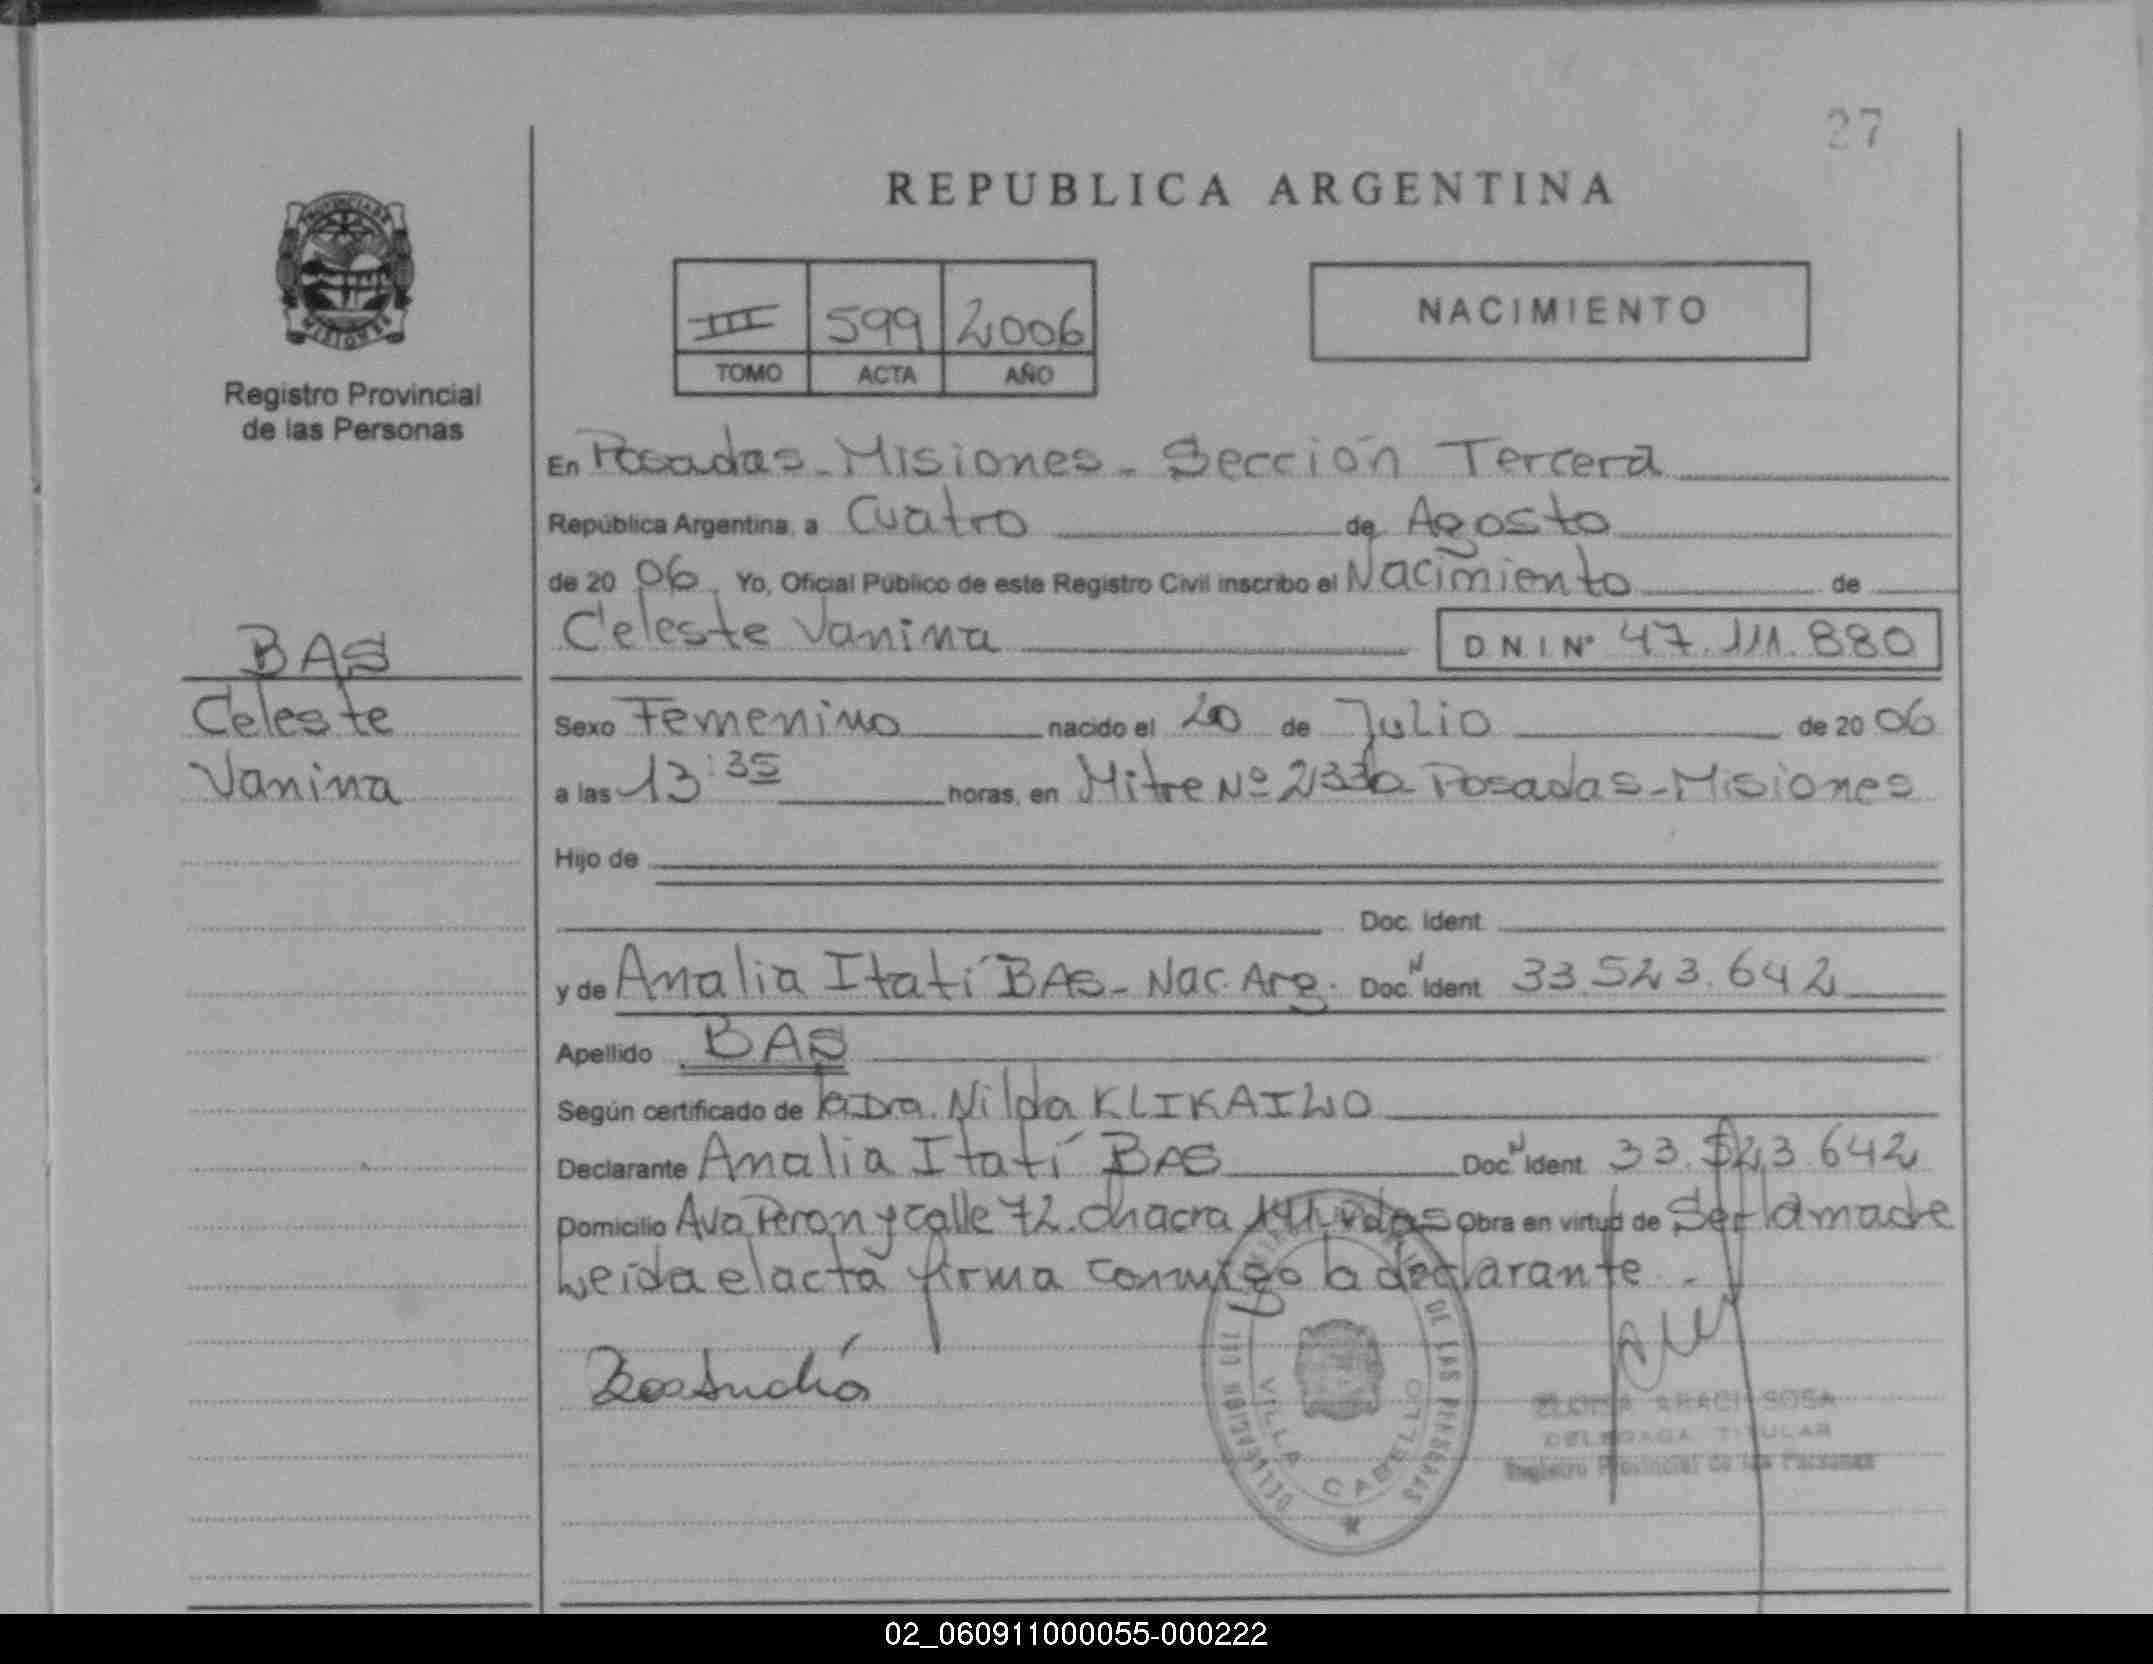 27
REPUBLICA ARGENTINA
PROVINCIA DE
MISIONES
Registro Provincial
de las Personas
III 599 2006
TOMO ACTA AÑO
NACIMIENTO
En Posadas - Misiones - Sección Tercera
República Argentina, a Cuatro de Agosto
de 20 06. Yo, Oficial Público de este Registro Civil inscribo el Nacimiento de
Celeste Vanina
D N I Nº 47.111.880
BAS
Celeste
Vanina
Sexo Femenino nacido el 20 de Julio de 20 06
a las 13:35 horas, en Mitre Nº 2330 Posadas - Misiones
Hijo de
Doc. Ident
y de Analia Itatí BAS - Nac. Arg. Doc. N Ident 33.523.642
Apellido BAS
Según certificado de la Dra. Nilda KLIKAILO
Declarante Analia Itatí BAS Doc. N Ident 33.523.642
Domicilio Avda Peron y calle 72. chacra Pdas Obra en virtud de Ser la madre
Leida el acta firma conmigo la declarante.-
DELEGACIÓN DEL REGISTRO PROVINCIAL DE LAS PERSONAS
VILLA CABELLO
ARACI SOSA
DELEGADA TITULAR
Registro Provincial de las Personas
02_060911000055-000222